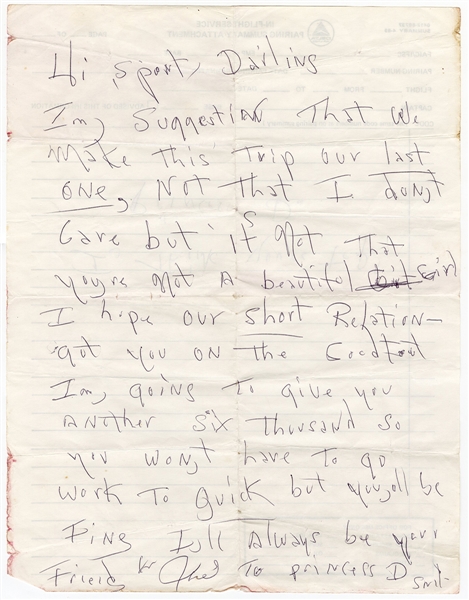 Hi Sport, Darling
I,m, Suggestion That we
Make this Trip our last
ONE, Not That I don,t
Care but it's Not That
you,re Not A beautiful Girl
I hope our short Relation-
got you on the
I,m, going to give you
ANother six Thousand so
you won,t have to go
work To quick but you,ll be
Fine I,ll Always be your
Friend To princess D